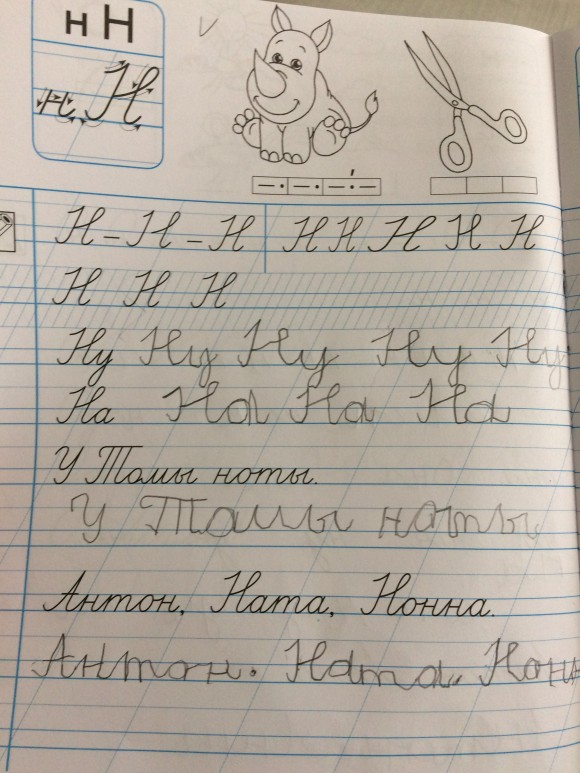 н Н
н Н
Н – Н – Н Н Н Н Н Н
Н Н Н
Ну Ну Ну Ну Ну
На На На На
У Томы ноты.
У Томы ноты
Антон, Ната, Нонна.
Антон. Ната. Нонн